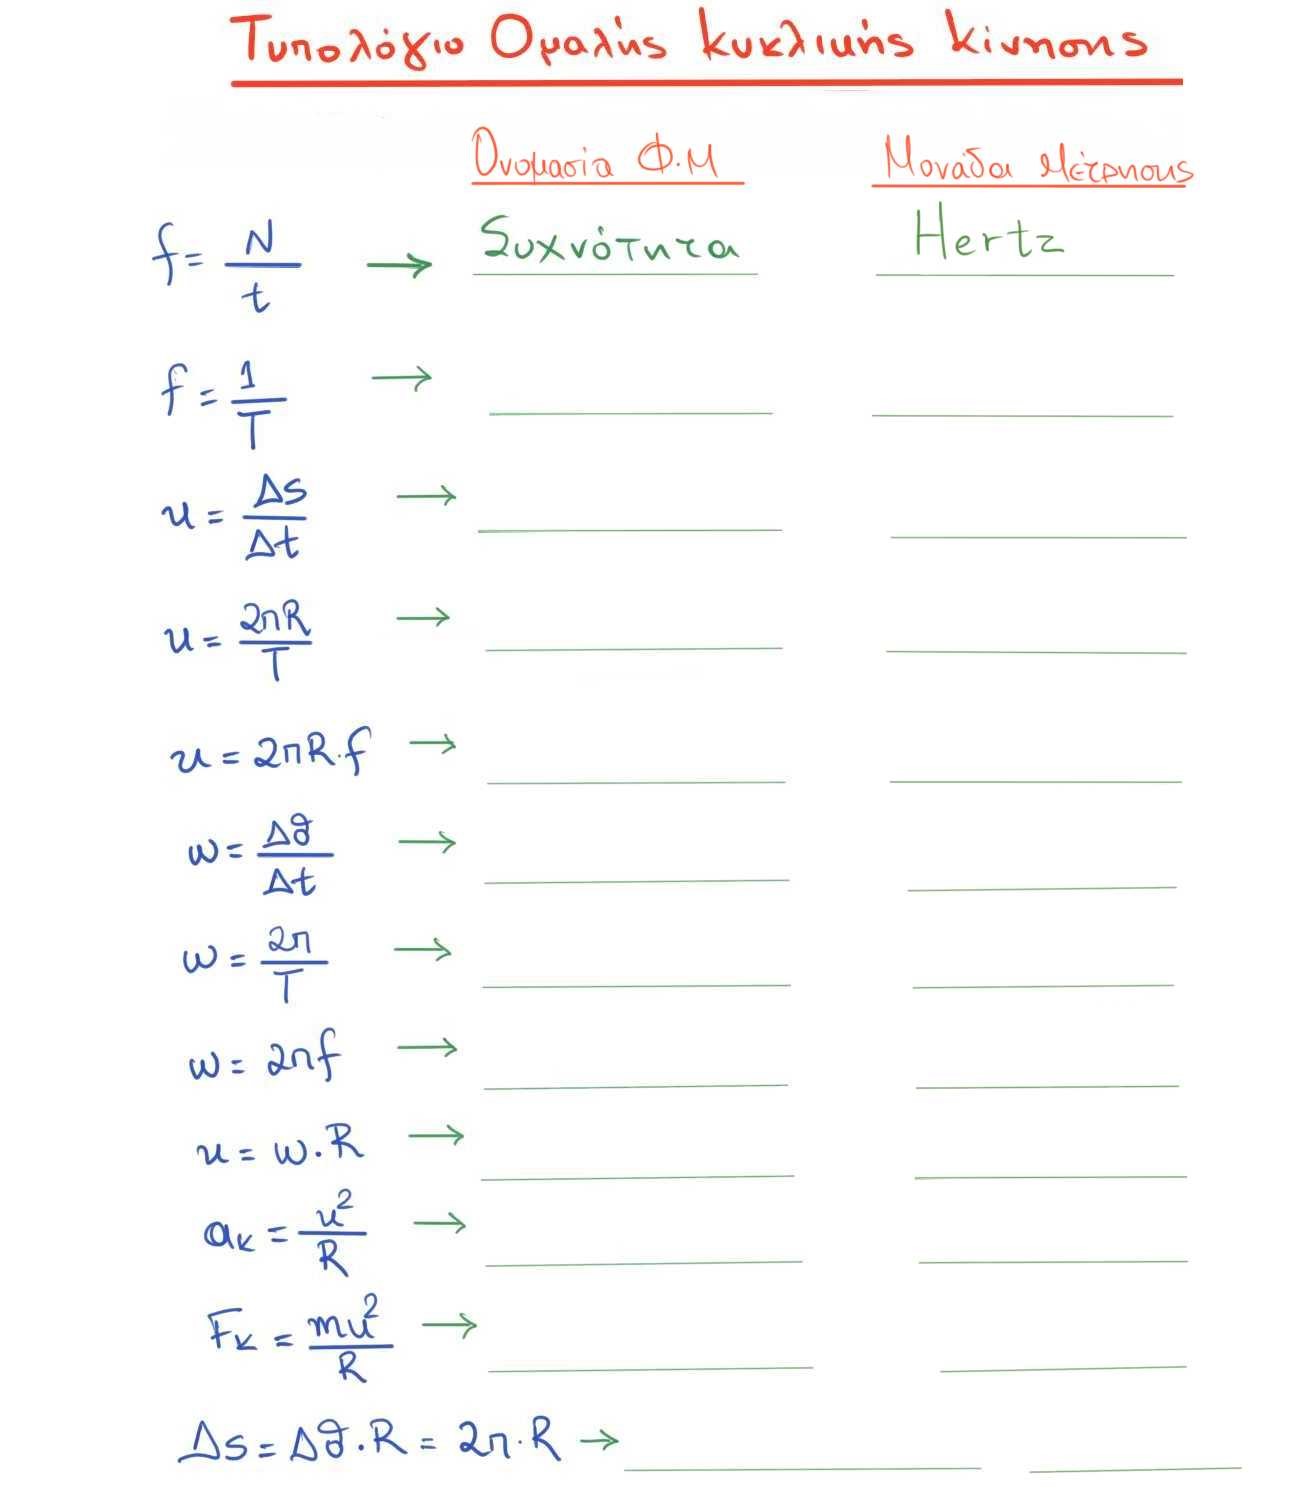 Τυπολόγιο Ομαλής κυκλικής κίνησης
Ονομασία Φ.Μ Μονάδα Μέτρησης
f = N/t → Συχνότητα Hertz
f = 1/T →
u = Δs/Δt →
u = 2πR/T →
u = 2πR·f →
ω = Δθ/Δt →
ω = 2π/T →
ω = 2πf →
u = ω·R →
aκ = u²/R →
Fκ = mu²/R →
Δs = Δθ·R = 2π·R →